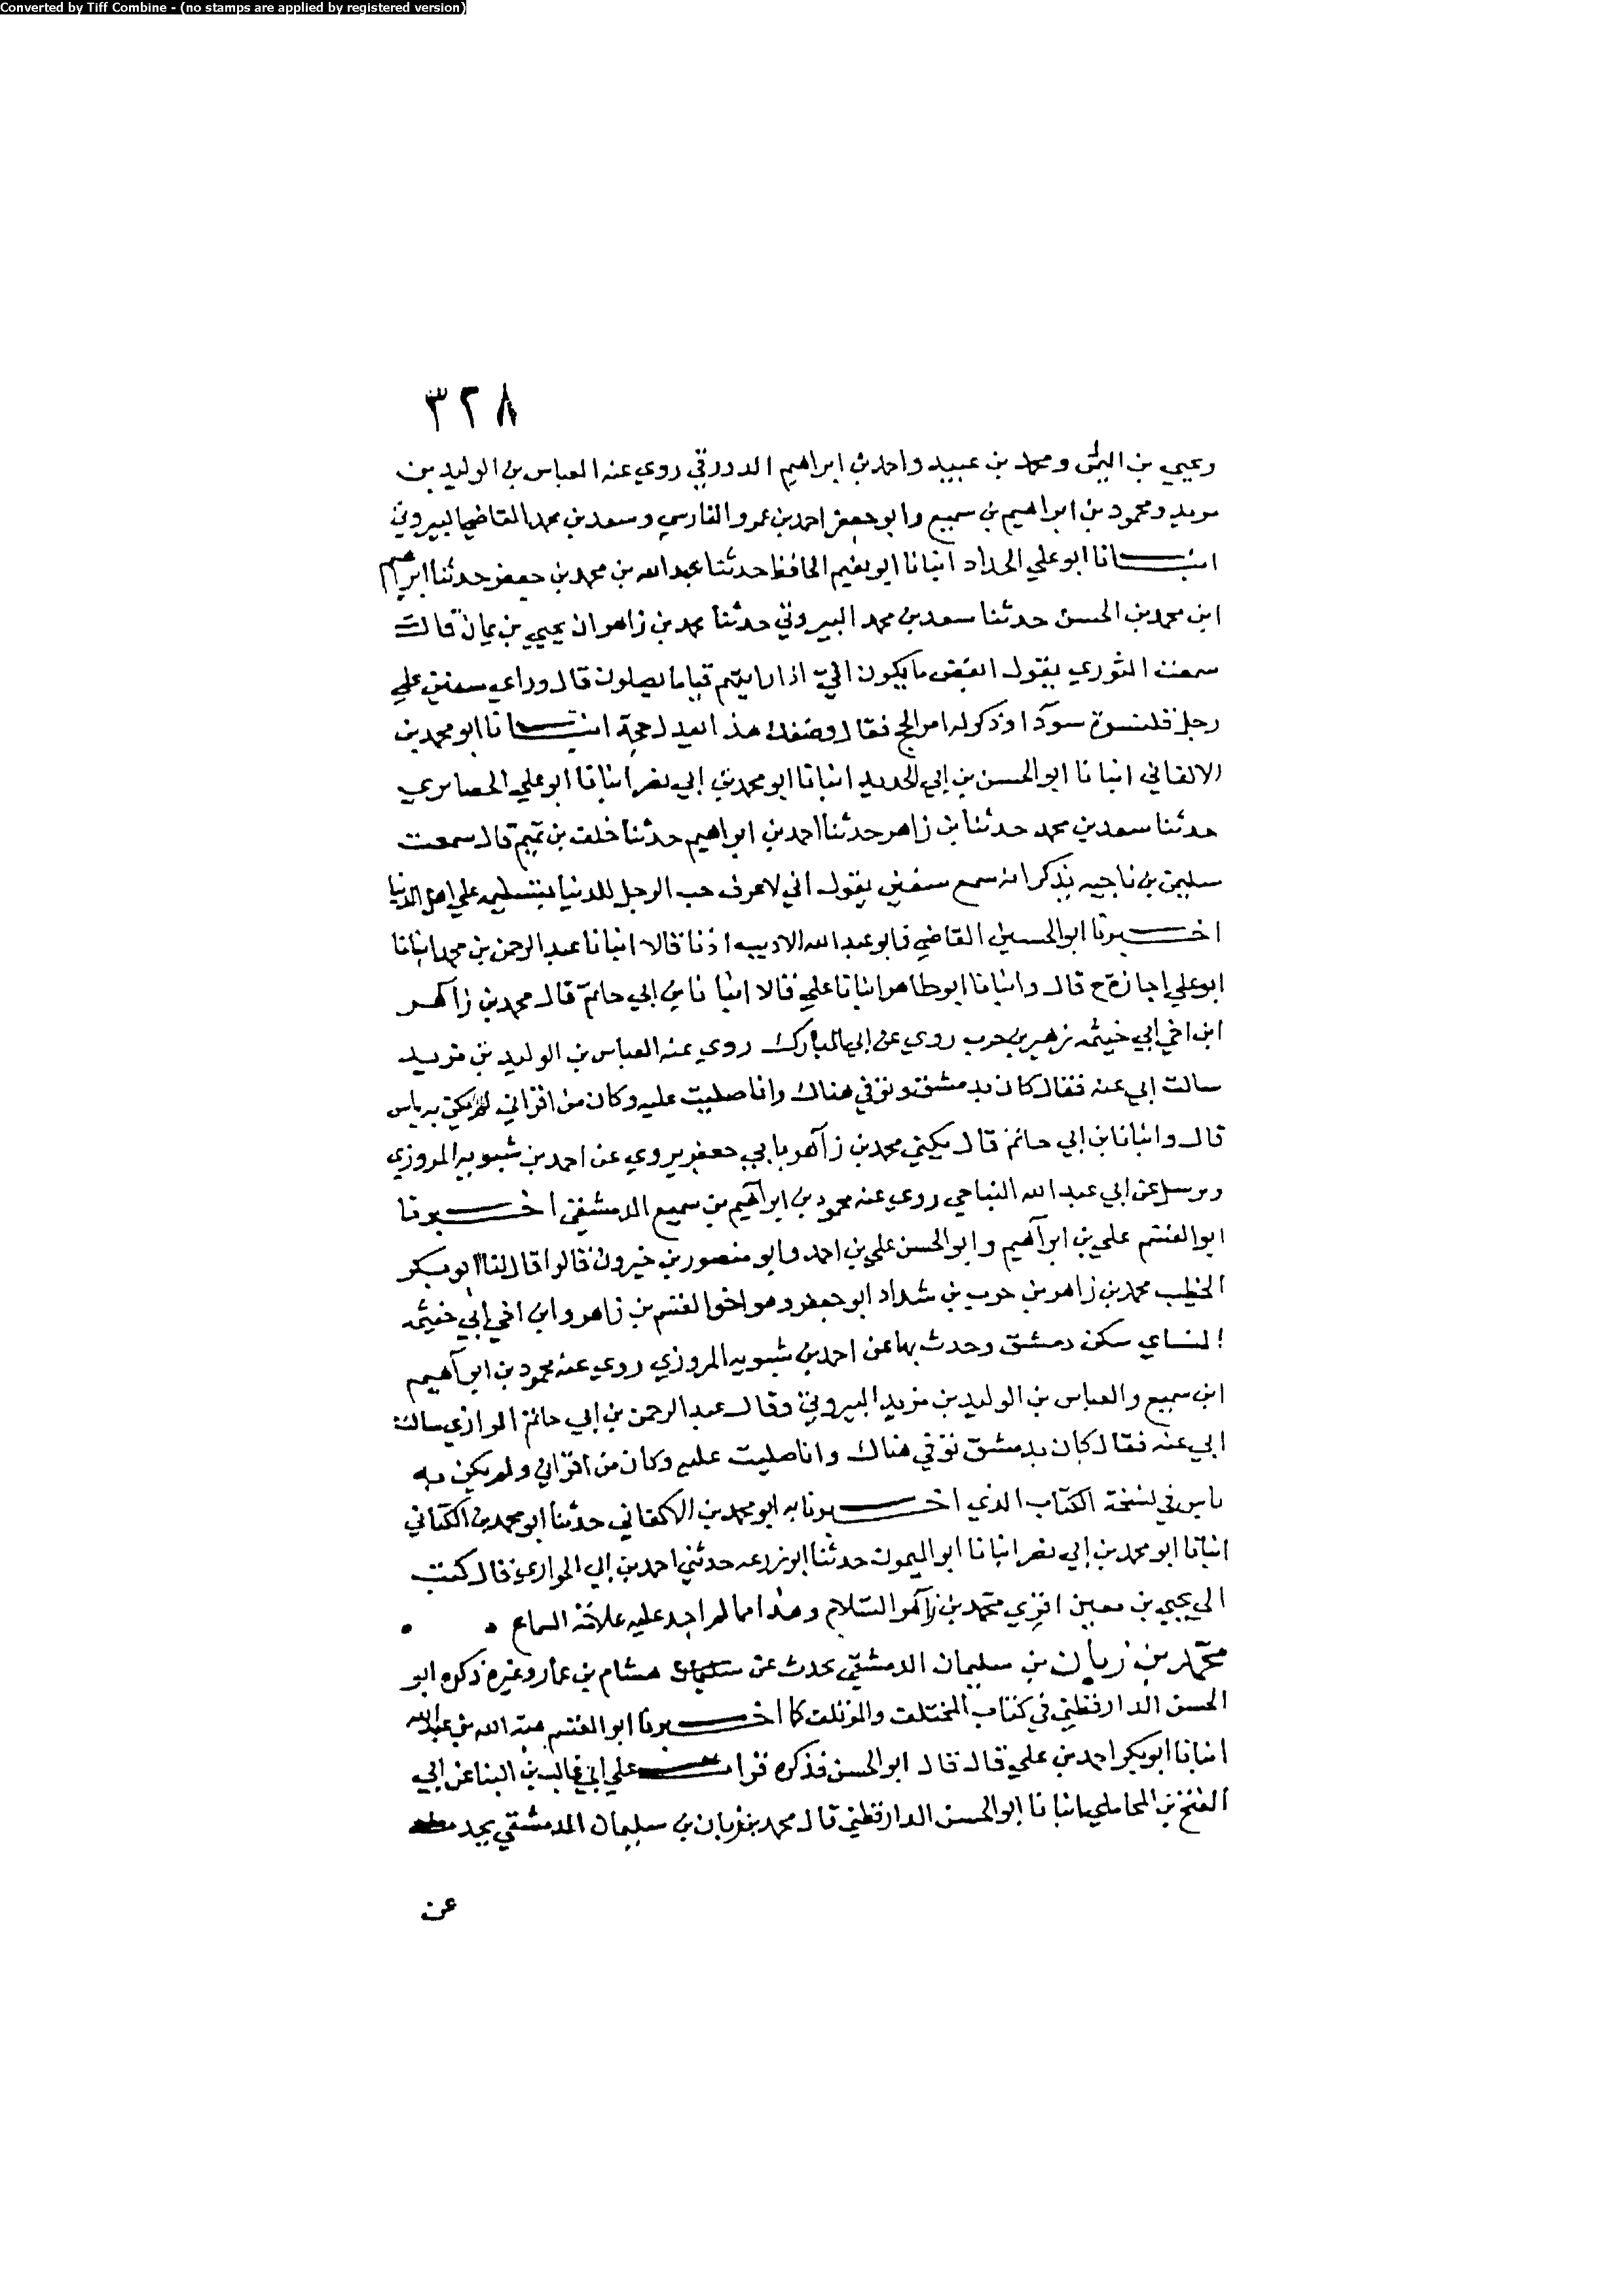 Converted by Tiff Combine - (no stamps are applied by registered version)
٣٢٨
ويحيي بن اليمن ومحمد بن عبيد واحمد بن ابراهيم الدورقي روي عنه العباس بن الوليد بن
مزيد ومحمود بن ابراهيم بن سميع وابو جعفر احمد بن عمرو الفارسي وسعد بن محمد القاضي البيروتي
انبانا ابو علي الحداد انبانا ابو نعيم الحافظ حدثنا عبد الله بن محمد بن جعفر حدثنا ابراهيم
ابن محمد بن الحسن حدثنا سعد بن محمد البيروتي حدثنا محمد بن زاهر ان يحيي بن يمان قال
سمعت الثوري يقول ابغض ما يكون الي اذا رايتهم قياما يصلون قال وراي سفين علي
رجل قلنسوة سودا وذكر له امر الحج فقال وضعك هذا يعدل حجة انبانا ابو محمد بن
الاكفاني انبانا ابو الحسن بن ابي الحديد انبانا ابو محمد بن ابي نصر انبانا ابو علي الحصايري
حدثنا سعد بن محمد حدثنا بن زاهر حدثنا احمد بن ابراهيم حدثنا خلف بن تميم قال سمعت
سليمن بن ناجيه يذكر انه سمع سفين يقول اني لاعرف حب الرجل للدنيا بتسليمه علي اهل الدنيا
اخبرنا ابو الحسين القاضي وابو عبد الله الاديب اذنا قالا انبانا عبد الرحمن بن محمد انبانا
ابو علي اجازة ح قال وانبانا ابو طاهر انبانا علي قالا انبانا بن ابي حاتم قال محمد بن زاهر
ابن اخي ابي خيثمه زهير بن حرب روي عن ابن المبارك روي عنه العباس بن الوليد بن مزيد
سالت ابي عنه فقال كان بدمشق وتوفي هناك وانا صليت عليه وكان من اقراني لم يكن به باس
قال وانبانا بن ابي حاتم قال يكني محمد بن زاهر بابي جعفر يروي عن احمد بن شبويه المروزي
ويرسل عن ابي عبد الله النباجي روي عنه محمود بن ابراهيم بن سميع الدمشقي اخبرنا
ابو القسم علي بن ابراهيم وابو الحسن علي بن احمد وابو منصور بن خيرون قالوا قال لنا ابو بكر
الخطيب محمد بن زاهر بن حرب بن شداد ابو جعفر وهو اخو القسم بن زاهر وابن اخي ابي خيثمه
النساي سكن دمشق وحدث بها عن احمد بن شبويه المروزي روي عنه محمود بن ابراهيم
ابن سميع والعباس بن الوليد بن مزيد البيروتي وقال عبد الرحمن بن ابي حاتم الرازي سالت
ابي عنه فقال كان بدمشق توفي هناك وانا صليت عليه وكان من اقراني ولم يكن به
باس في نسخة الكتاب الذي اخبرنا به ابو محمد بن الاكفاني حدثنا ابو محمد بن الكتاني
انبانا ابو محمد بن ابي نصر انبانا ابو الميمون حدثنا ابو زرعه حدثني احمد بن ابي الحواري قال كتب
الي يحيي بن معين اقري محمد بن زاهر السلام وهذا مما لم اجد عليه علامة السماع
محمد بن زبان بن سليمان الدمشقي يحدث عن هشام بن عمار وغيره ذكره ابو
الحسن الدارقطني في كتاب المختلف والموتلف كما اخبرنا ابو القسم هبة الله بن عبد الله
انبانا ابو بكر احمد بن علي قال قال ابو الحسن فذكره قرات علي ابي غالب بن البنا عن ابي
الفتح بن المحاملي انبانا ابو الحسن الدارقطني قال محمد بن زبان بن سليمان الدمشقي يحدث
عن